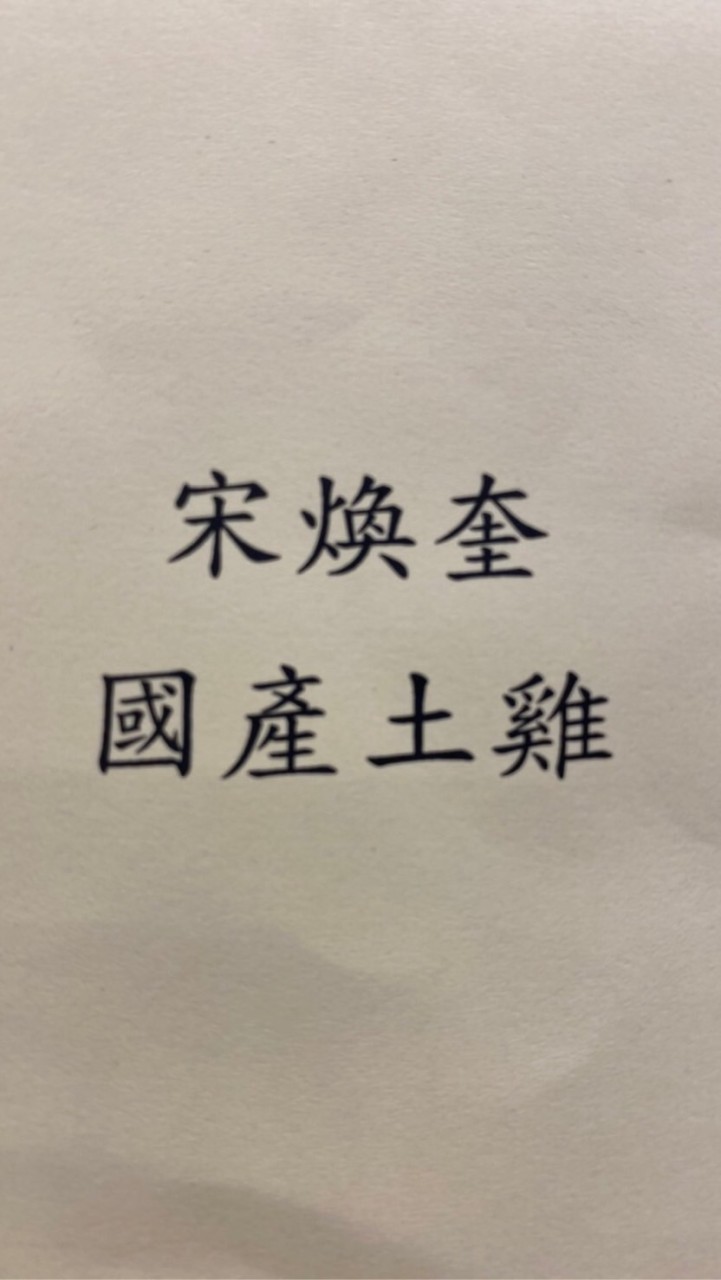 宋煥奎
國產土雞